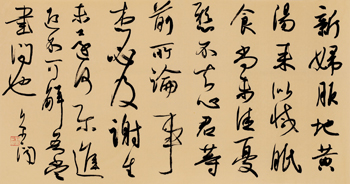 新婦服地黄
湯来似減眠
食尚未佳憂
懸不去心君等
前所論事
想必及謝生
未還何尔進
退不可解吾当
書问也